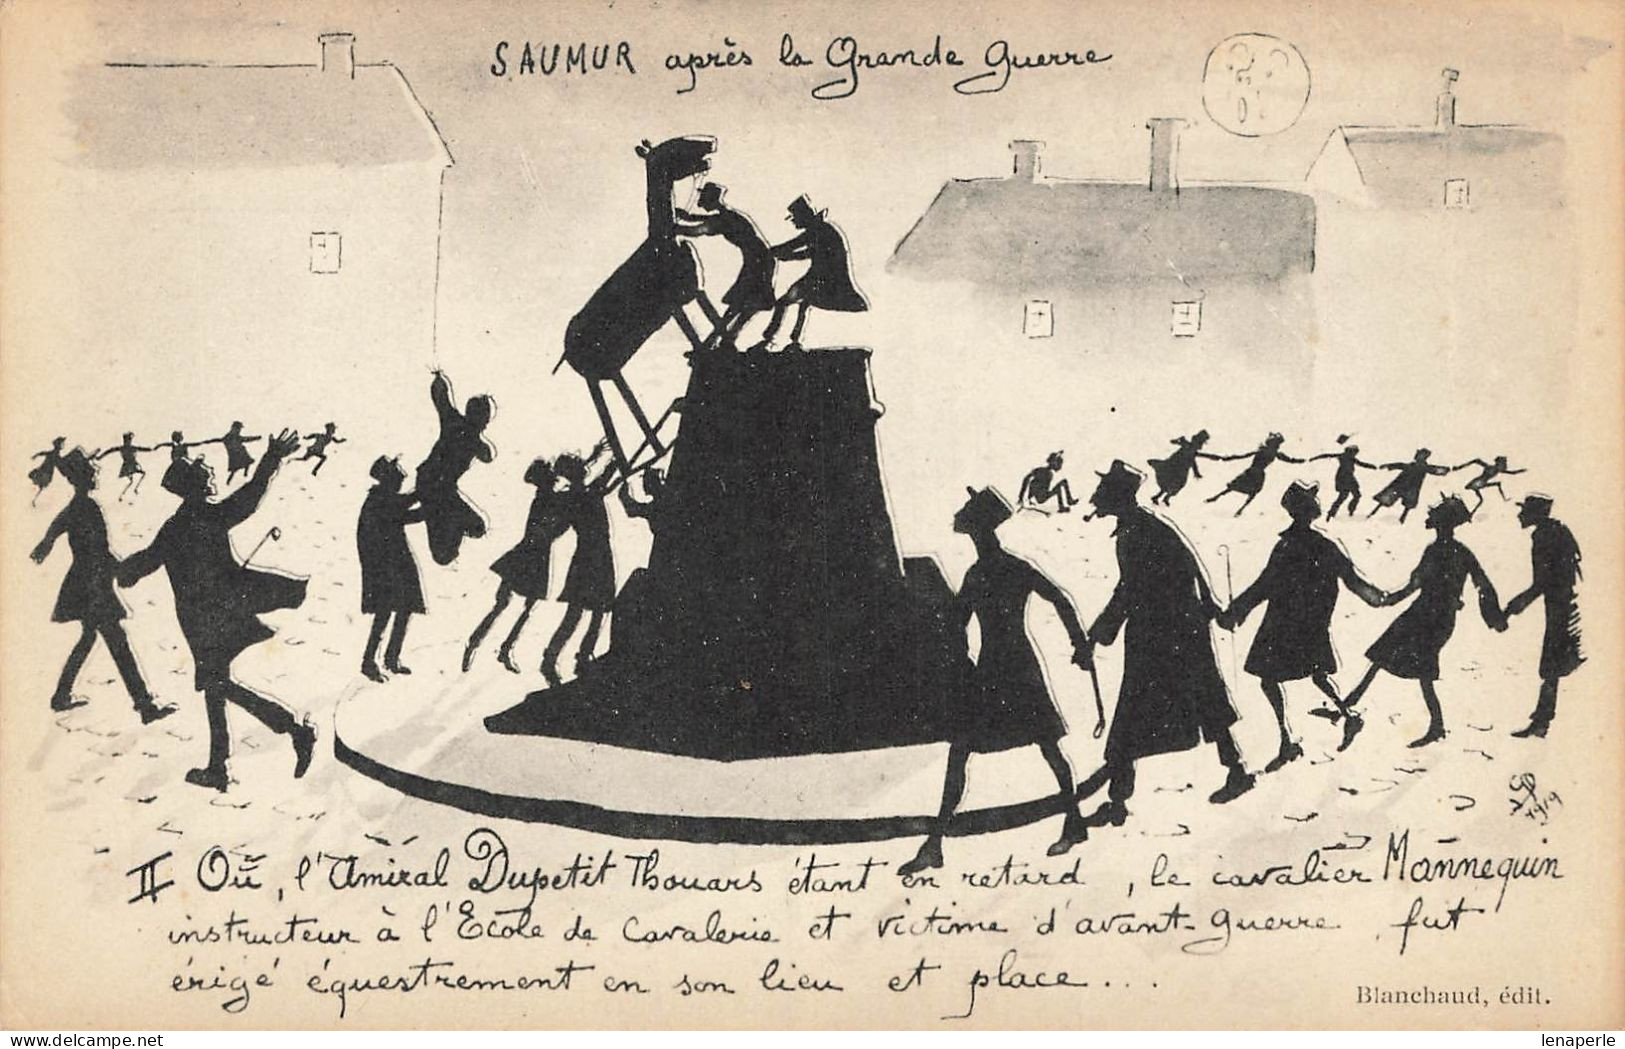 SAUMUR après la Grande Guerre
II Où, l'Amiral Dupetit Thouars étant en retard, le cavalier Mannequin
instructeur à l'Ecole de Cavalerie et victime d'avant-guerre, fut
érigé équestrement en son lieu et place...
1919
Blanchaud, édit.
delcampe.net
lenaperle